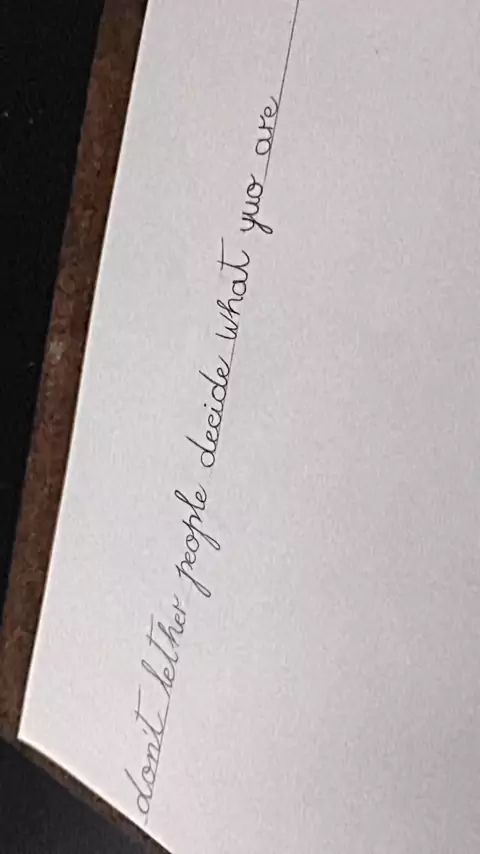 don't lether people decide what yuo are